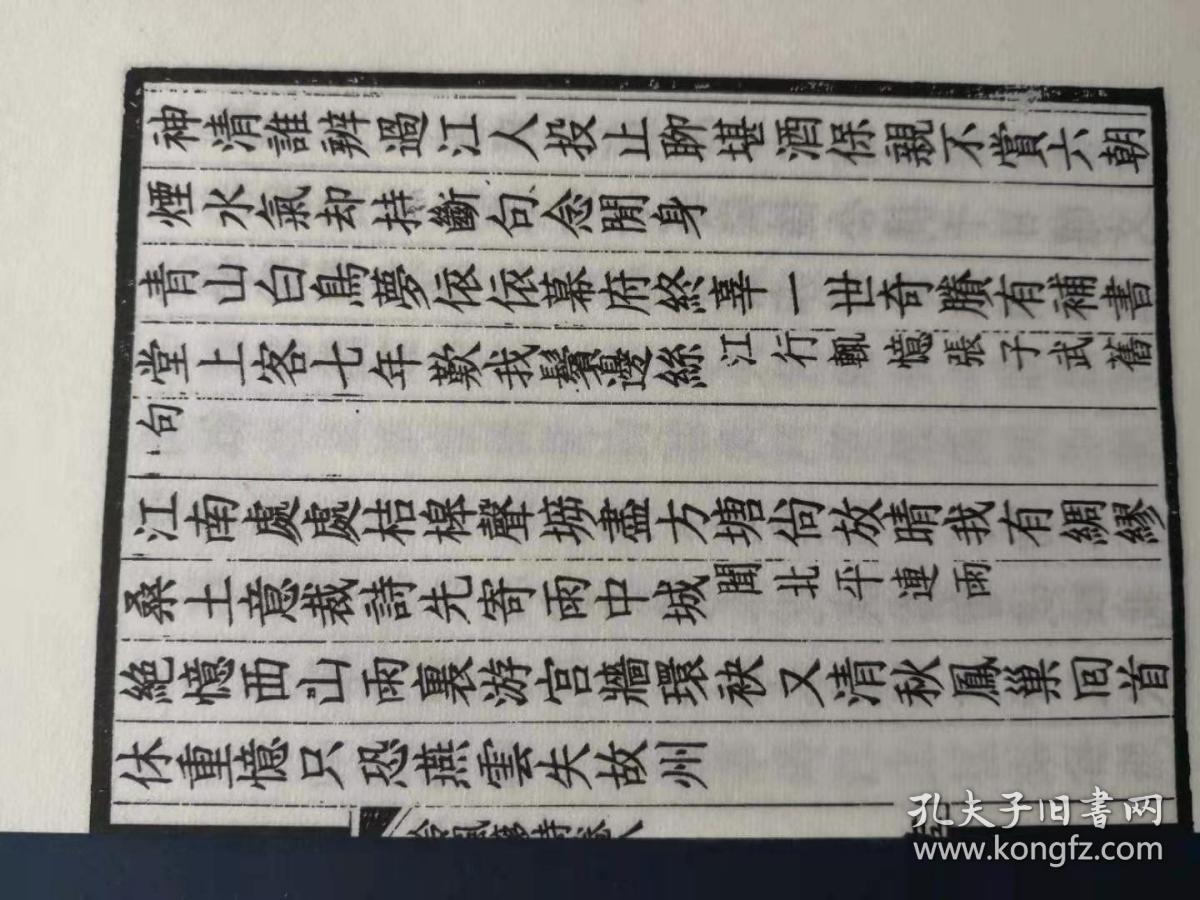 神清誰辨過江人投止聊堪酒保親不賞六朝
煙水氣却持斷句念閒身
青山白鳥夢依依幕府終辜一世奇賸有補書
堂上客七年歎我鬢邊絲江行輒憶張子武舊
句
江南處處桔槔聲堀盡方塘尙放晴我有綢繆
桑土意裁詩先寄雨中城聞北平連雨
絕憶西山雨裏游宮牆環袂又清秋鳳巢回首
休重憶只恐燕雲失故州
孔夫子旧书网
www.kongfz.com